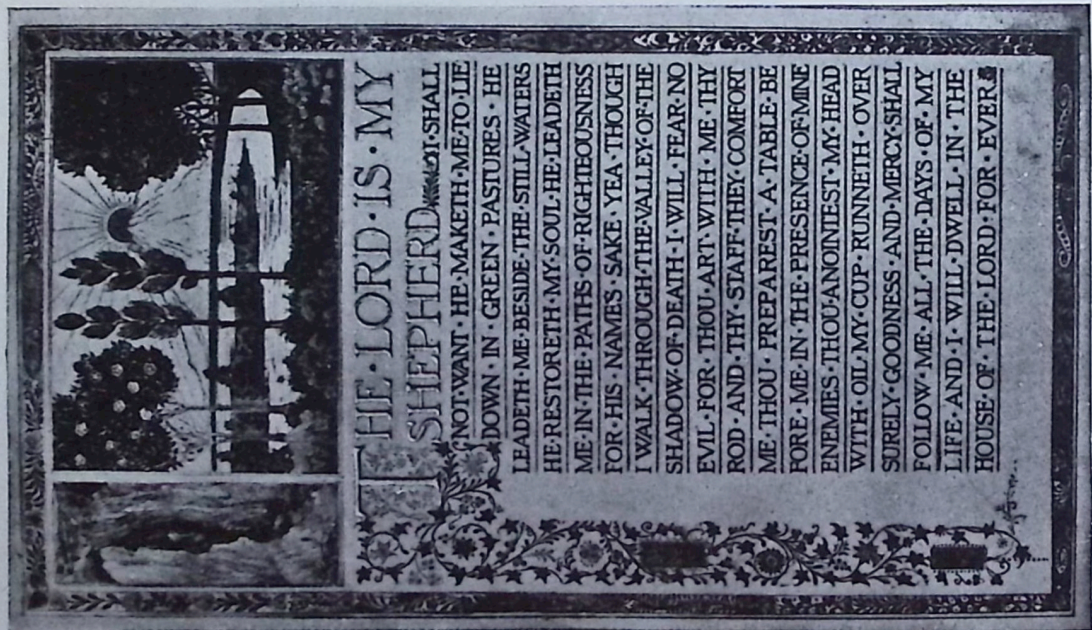 THE · LORD · IS · MY
SHEPHERD I · SHALL
NOT · WANT · HE · MAKETH · ME · TO · LIE
DOWN · IN · GREEN · PASTURES · HE
LEADETH · ME · BESIDE · THE · STILL · WATERS
HE · RESTORETH · MY · SOUL · HE · LEADETH
ME · IN · THE · PATHS · OF · RIGHTEOUSNESS
FOR · HIS · NAMES · SAKE · YEA · THOUGH
I WALK · THROUGH · THE · VALLEY · OF · THE
SHADOW · OF · DEATH · I · WILL · FEAR · NO
EVIL · FOR · THOU · ART · WITH · ME · THY
ROD · AND · THY · STAFF · THEY · COMFORT
ME · THOU · PREPAREST · A · TABLE · BE
FORE · ME · IN · THE · PRESENCE · OF · MINE
ENEMIES · THOU · ANOINTEST · MY · HEAD
WITH · OIL · MY · CUP · RUNNETH · OVER
SURELY · GOODNESS · AND · MERCY · SHALL
FOLLOW · ME · ALL · THE · DAYS · OF · MY
LIFE · AND · I · WILL · DWELL · IN · THE
HOUSE · OF · THE · LORD · FOR · EVER